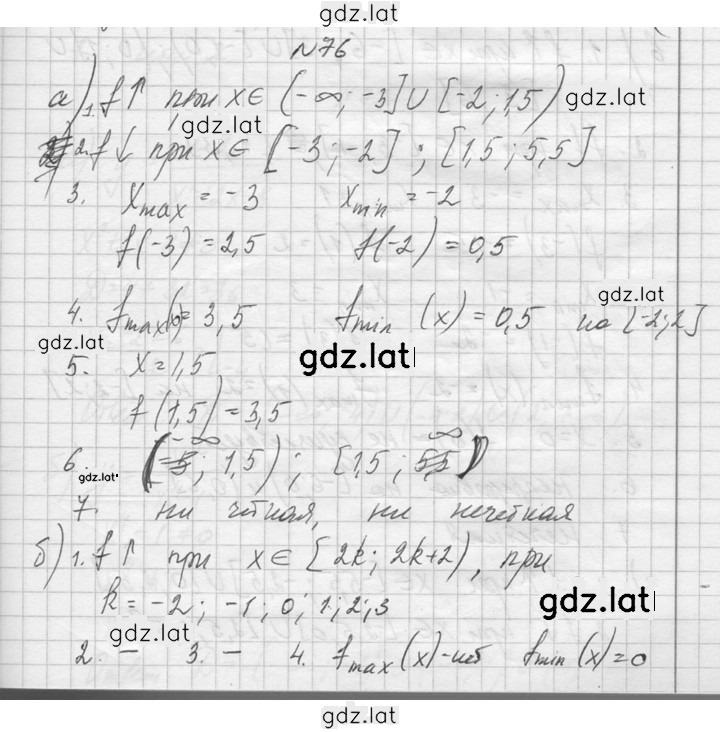 gdz.lat
№76
а) 1. f↑ при x∈ (-∞; -3]∪[-2; 1,5) gdz.lat
gdz.lat
2. f↓ при x∈ [-3; -2]; [1,5; 5,5]
3. xmax = -3 xmin = -2
f(-3) = 2,5 f(-2) = 0,5
gdz.lat
4. fmax(x) = 3,5 fmin (x) = 0,5 на [-2; 2]
gdz.lat gdz.lat
5. x = 1,5
f(1,5) = 3,5
6. (-∞; 1,5); [1,5; ∞)
gdz.lat
7. ни чётная, ни нечетная
б) 1. f↑ при x∈ [2k; 2k+2), при
k = -2; -1; 0; 1; 2; 3 gdz.lat
gdz.lat
2. — 3. — 4. fmax(x) - нет fmin(x) = 0
gdz.lat